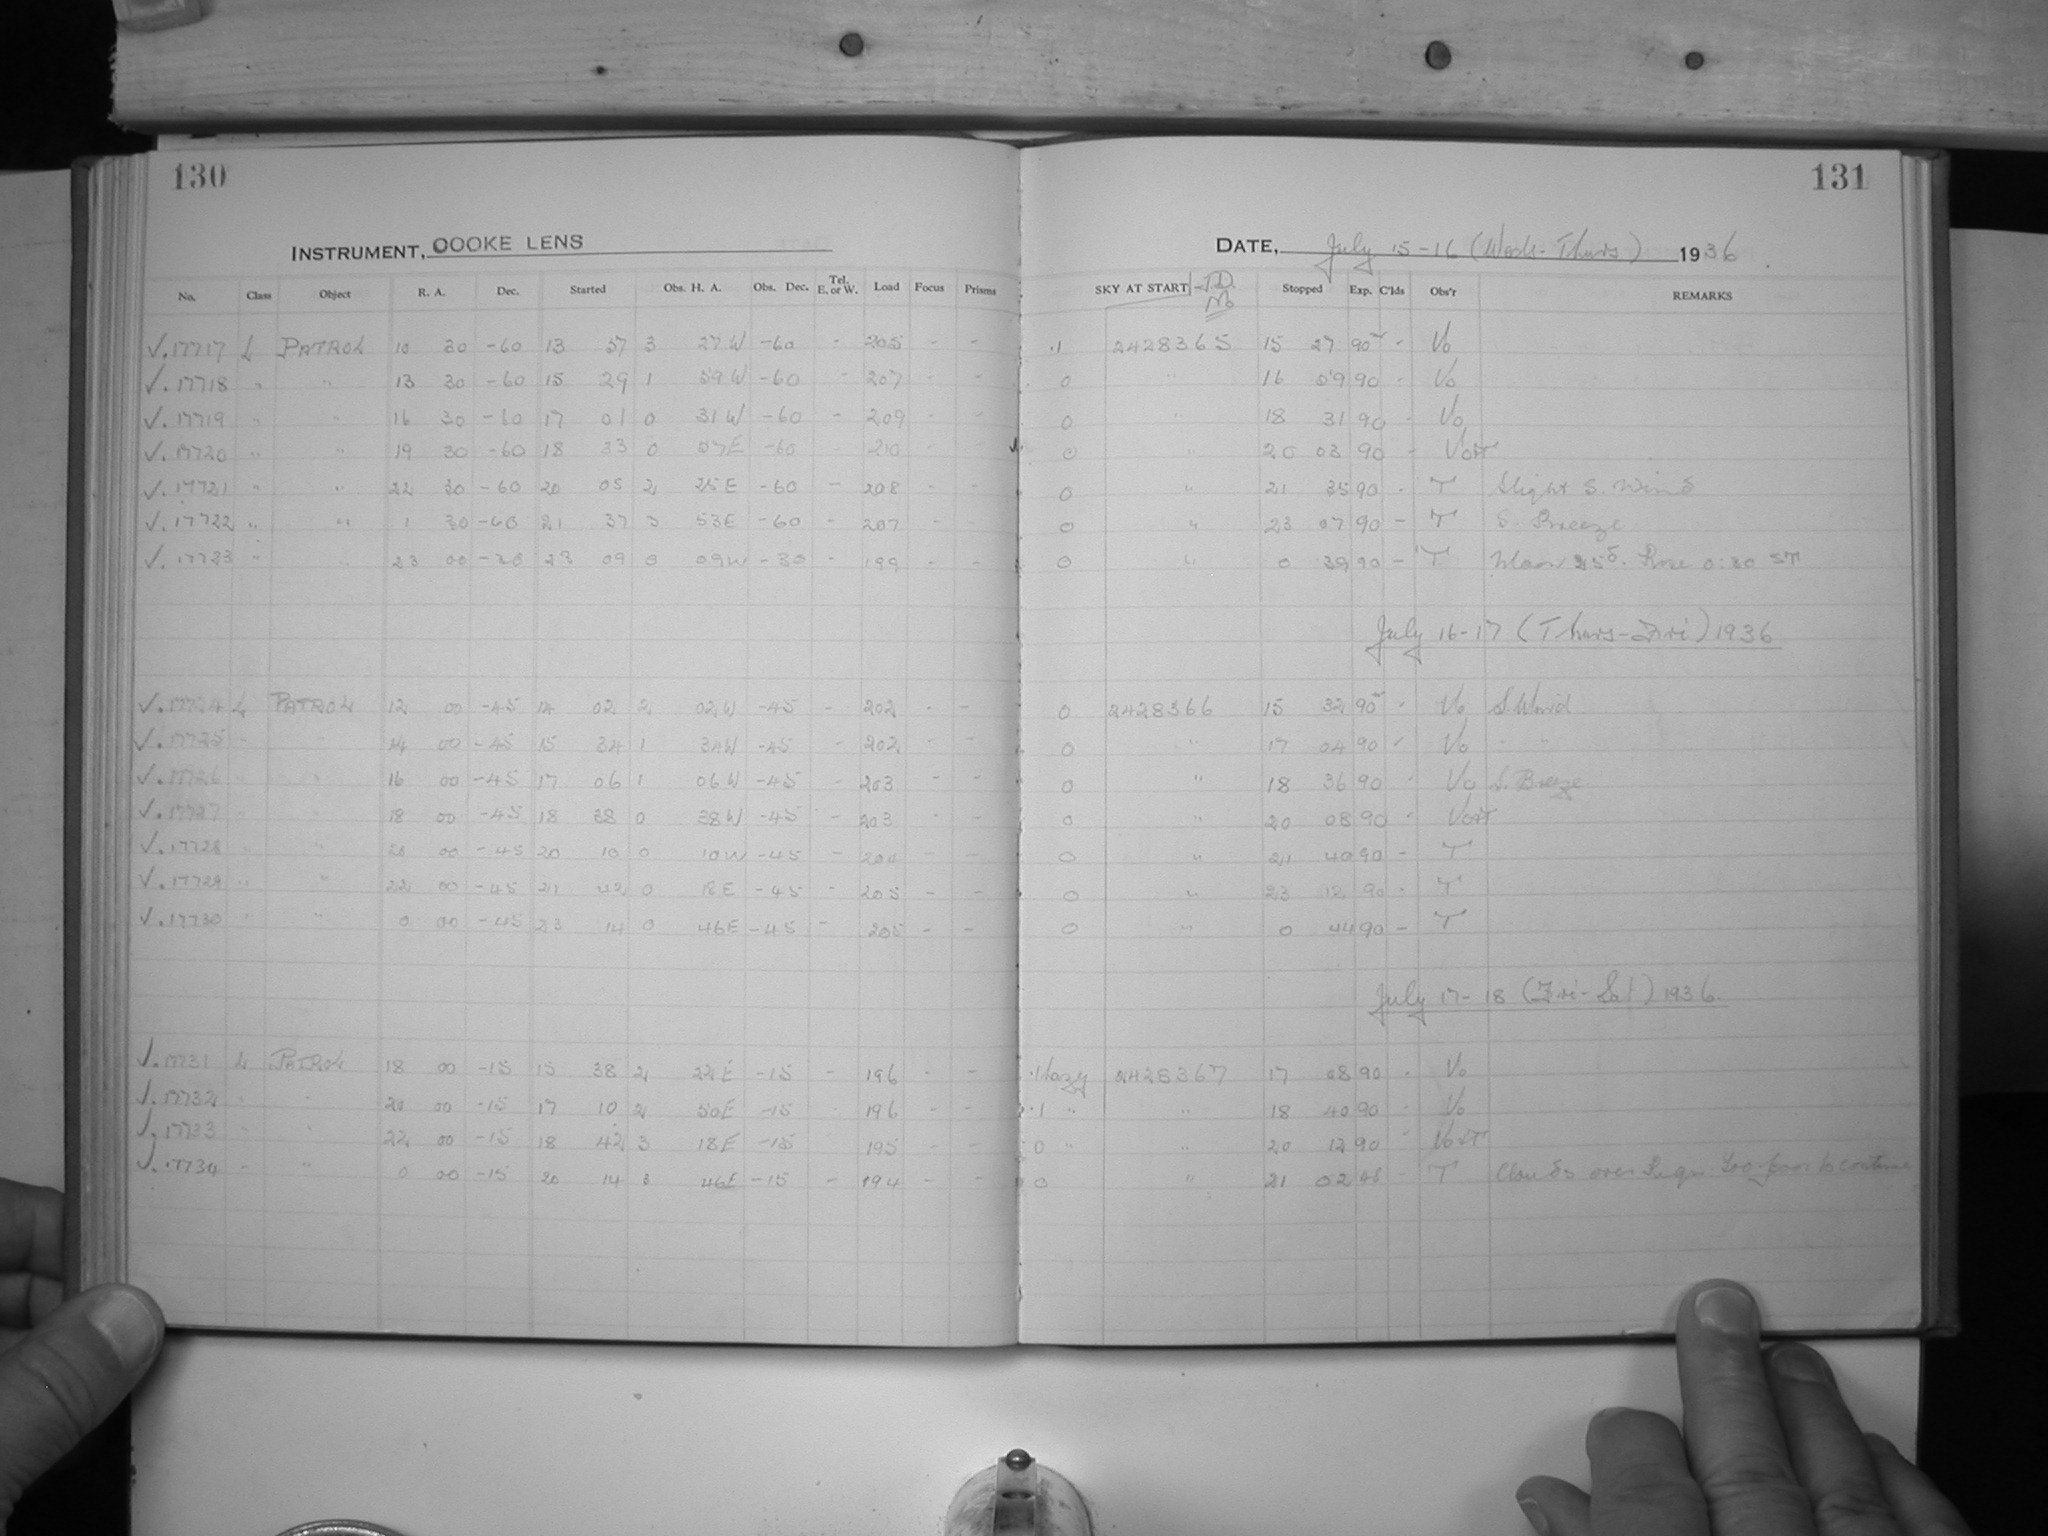 130
131
INSTRUMENT, COOKE LENS
DATE, July 15-16 (Wed-Thurs) 1936
No. Class Object R. A. Dec. Started Obs. H. A. Obs. Dec. Tel. E. or W. Load Focus Prisms SKY AT START J.D. No Stopped Exp. C'lds Obs'r REMARKS
√.17717 L PATROL 10 30 -60 13 57 3 27W -60 - 205 - - .1 2428365 15 27 90 - Vo
√.17718 " " 13 30 -60 15 29 1 59W -60 - 207 - - 0 " 16 59 90 - Vo
√.17719 " " 16 30 -60 17 01 0 31W -60 - 209 - - 0 " 18 31 90 - Vo
√.17720 " " 19 30 -60 18 33 0 57E -60 - 210 - - 0 " 20 03 90 - Vo+T
√.17721 " " 22 30 -60 20 05 2 25E -60 - 208 - - 0 " 21 35 90 - T Slight S. Wind
√.17722 " " 1 30 -60 21 37 3 53E -60 - 207 - - 0 " 23 07 90 - T S. Breeze
√.17723 " " 23 00 -30 23 09 0 09W -30 - 199 - - 0 " 0 39 90 - T Moon Rose 0:30 ST
July 16-17 (Thurs-Fri) 1936
√.17724 L PATROL 12 00 -45 14 02 2 02W -45 - 202 - - 0 2428366 15 32 90 - Vo S. Wind
√.17725 " " 14 00 -45 15 34 1 34W -45 - 202 - - 0 " 17 04 90 - Vo " "
√.17726 " " 16 00 -45 17 06 1 06W -45 - 203 - - 0 " 18 36 90 - Vo S. Breeze
√.17727 " " 18 00 -45 18 38 0 38W -45 - 203 - - 0 " 20 08 90 - Vo+T
√.17728 " " 20 00 -45 20 10 0 10W -45 - 204 - - 0 " 21 40 90 - T
√.17729 " " 22 00 -45 21 42 0 18E -45 - 205 - - 0 " 23 12 90 - T
√.17730 " " 0 00 -45 23 14 0 46E -45 - 205 - - 0 " 0 44 90 - T
July 17-18 (Fri-Sat) 1936.
√.17731 L PATROL 18 00 -15 15 38 2 22E -15 - 196 - - .1 hazy 2428367 17 08 90 - Vo
√.17732 " " 20 00 -15 17 10 2 50E -15 - 196 - - .1 " " 18 40 90 - Vo
√.17733 " " 22 00 -15 18 42 3 18E -15 - 195 - - 0 " " 20 12 90 - Vo+T
√.17734 " " 0 00 -15 20 14 3 46E -15 - 194 - - 0 " 21 02 48 - T Clouds over Too poor to continue